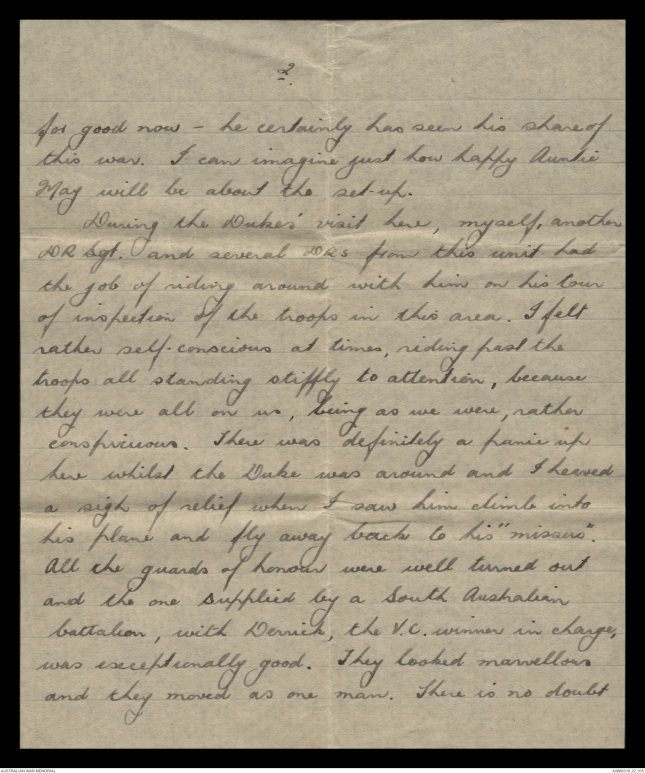 2.
for good now - he certainly has seen his share of
this war. I can imagine just how happy Auntie
May will be about the set-up.
During the Dukes' visit here, myself, another
DR Sgt. and several DRs from this unit had
the job of riding around with him on his tour
of inspection of the troops in this area. I felt
rather self-conscious at times, riding past the
troops all standing stiffly to attention, because
they were all on us, being as we were, rather
conspicuous. There was definitely a panic up
here whilst the Duke was around and I heaved
a sigh of relief when I saw him climb into
his plane and fly away back to his "missus".
All the guards of honour were well turned out
and the one supplied by a South Australian
battalion, with Derrick, the V.C. winner in charge,
was exceptionally good. They looked marvellous
and they moved as one man. There is no doubt
AUSTRALIAN WAR MEMORIAL